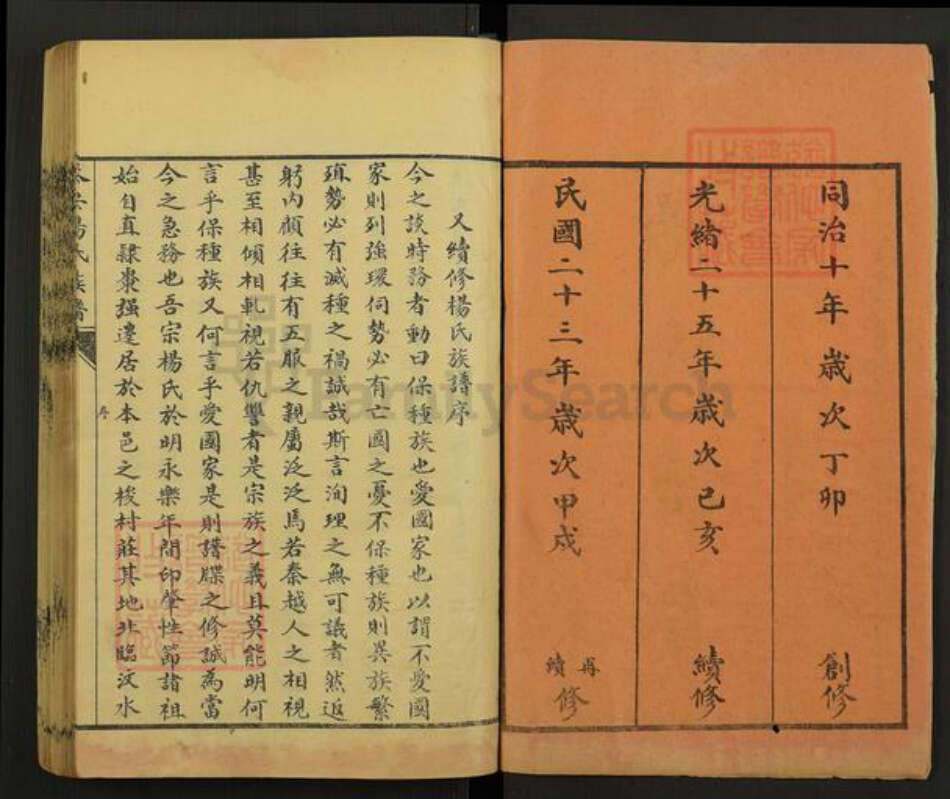 同治十年歲次丁卯 創修
光緒二十五年歲次己亥 續修
民國二十三年歲次甲戌 再續修
又續修楊氏族譜序
今之談時務者動曰保種族也愛國家也以謂不愛國
家則列強環伺勢必有亡國之憂不保種族則異族繁
殖勢必有滅種之禍誠哉斯言洵理之無可議者然返
躬內顧往往有五服之親屬泛泛焉若秦越人之相視
甚至相傾相軋視若仇讐者是宗族之義且莫能明何
言乎保種族又何言乎愛國家是則譜牒之修誠為當
今之急務也吾宗楊氏於明永樂年間印肇性節諸祖
始自真隸棗强遷居於本邑之梭村莊其地北臨汶水
序
楊氏族譜
FamilySearch